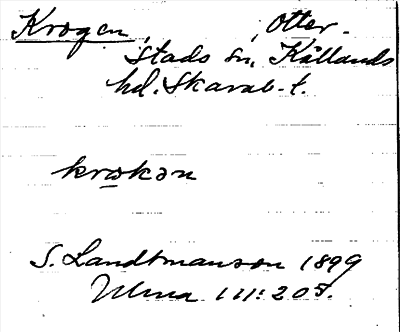 Krogen, , Otter-
stads sn, Kållands
hd. Skarab. l.
krɷkən
S. Landtmanson 1899
Ulma 111:205.